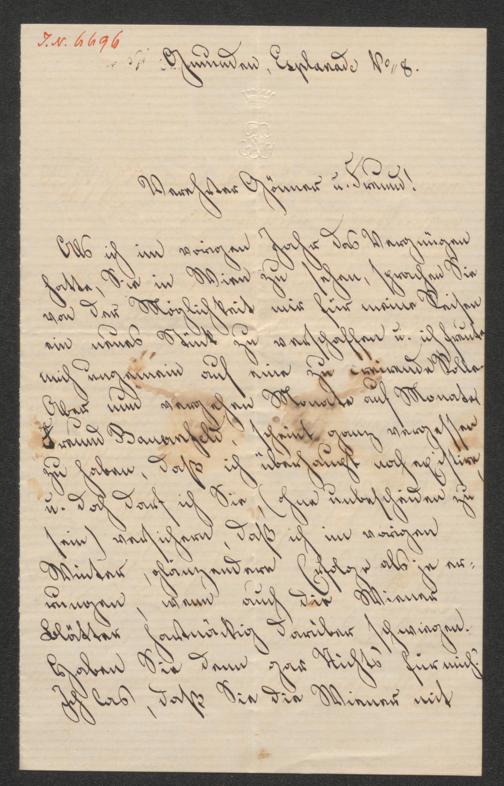 I. N. 6696
Gmunden, Esplanade No 8.
Verehrter Gönner u. Freund!
Als ich im vorigen Jahr das Vergnügen
hatte, Sie in Wien zu sehen, sprachen Sie
von der Möglichkeit mir für meine Reisen
ein neues Stück zu verschaffen u. ich freute
mich ungemein auf eine zu creirende Rolle.
Aber nun vergehen Monate auf Monate,
Freund Bauernfeld, scheint ganz vergessen
zu haben, daß ich überhaupt noch existire,
u. doch darf ich Sie, (ohne unbescheiden zu
sein) versichern, daß ich im vorigen
Winter, glänzendere Erfolge als je er-
rungen, wenn auch die Wiener
Blätter hartnäckig darüber schwiegen.
Haben Sie denn gar Nichts für mich?
Ich las, daß Sie die Wiener mit